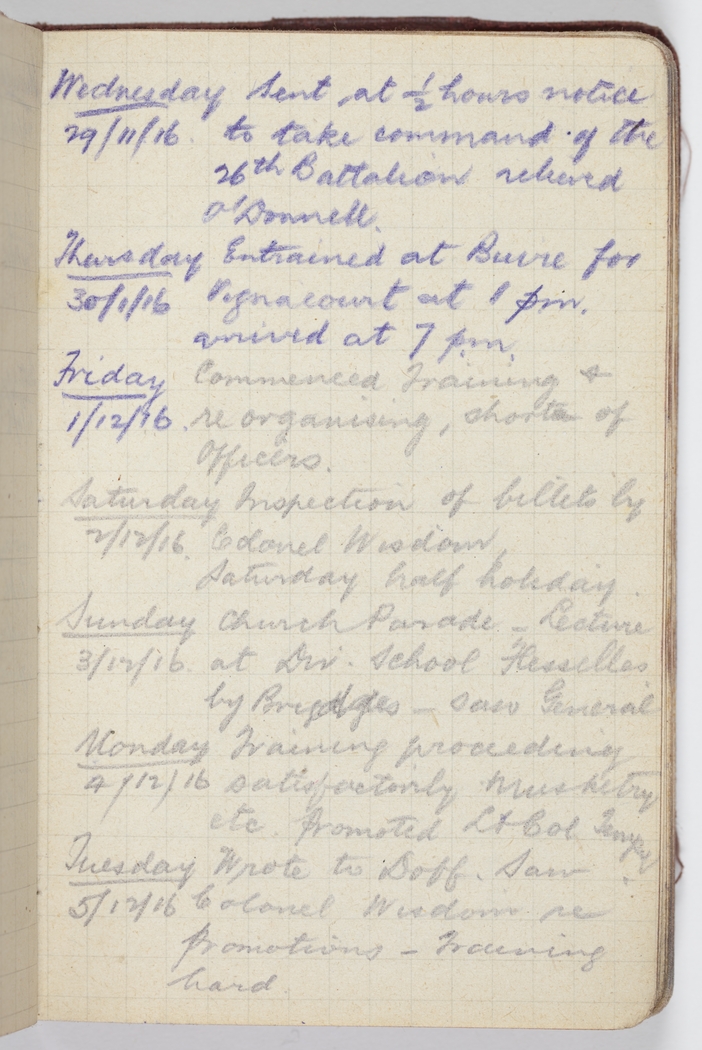 Wednesday Sent at ½ hours notice
29/11/16. to take command of the
26th Battalion relieved
O'Donnell.
Thursday Entrained at Buire for
30/11/16 Vignacourt at 1 pm.
arrived at 7 pm.
Friday Commenced Training &
1/12/16. re organising, short of
Officers.
Saturday Inspection of billets by
2/12/16. Colonel Wisdom,
Saturday half holiday.
Sunday Church Parade - Lecture
3/12/16. at Div. School Flesselles
by Bridges - saw General
Monday Training proceeding
4/12/16 satisfactorily Musketry
etc. Promoted Lt Col. Tempy
Tuesday Wrote to Doff. Saw
5/12/16 Colonel Wisdom re
promotions - Training
hard.